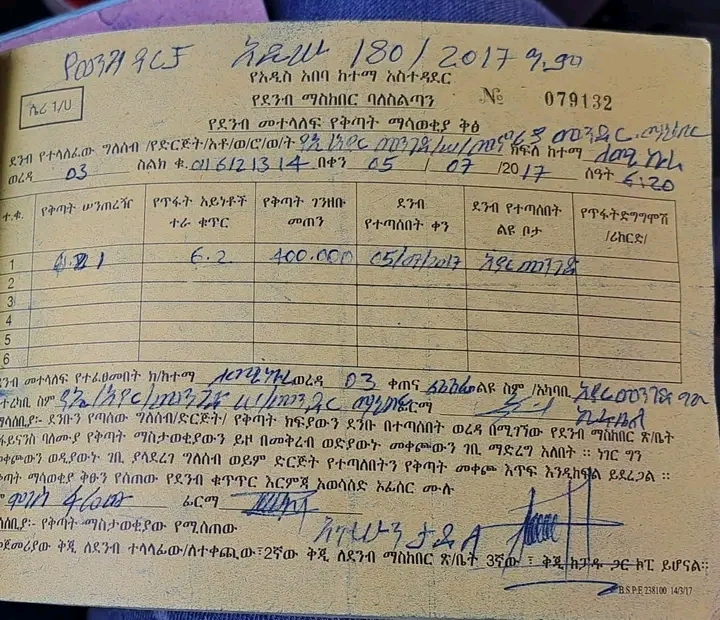 180/2017 ዓ.ም
የአዲስ አበባ ከተማ አስተዳደር
ሌሪ 1/ህ
የደንብ ማስከበር ባለስልጣን № 079132
የደንብ መተላለፍ የቅጣት ማሳወቂያ ቅፅ
ደንብ የተላለፈው ግለሰብ /የድርጅት/አቶ/ወ/ሮ/ወ/ት ክፍለ ከተማ ለሚ ኩራ
ወረዳ 03 ስልክ ቁ. 0116121314 በቀን 05 / 07 /2017 ሰዓት 6:20
ተ.ቁ. የቅጣት ሠንጠረዥ የጥፋት አይነቶች ተራ ቁጥር የቅጣት ገንዘቡ መጠን ደንብ የተጣሰበት ቀን ደንብ የተጣሰበት ልዩ ቦታ የጥፋትድግግሞሽ /ሪከርድ/
1 6.2 400.000 05/07/2017 አየር መንገድ
2
3
4
5
6
ደንብ መተላለፍ የተፈፀመበት ክ/ከተማ ለሚ ኩራ ወረዳ 03 ቀጠና ልዩ ስም /አካባቢ አየር መንገድ
ስም ፊርማ
ማሳሰቢያ:- ደንቡን የጣሰው ግለሰብ/ድርጅት/ የቅጣት ክፍያውን ደንቡ በተጣሰበት ወረዳ በሚገኘው የደንብ ማስከበር ጽ/ቤት
ፋይናንስ ባለሙያ የቅጣት ማስታወቂያውን ይዞ በመቅረብ ወድያውኑ መቀጮውን ገቢ ማድረግ አለበት ። ነገር ግን
መቀጮውን ወዲያውኑ ገቢ ያላደረገ ግለሰብ ወይም ድርጅት የተጣለበትን የቅጣት መቀጮ እጥፍ እንዲከፍል ይደረጋል ።
ቅጣት ማሳወቂያ ቅፁን የሰጠው የደንብ ቁጥጥር እርምጃ አወሳሰድ ኦፊሰር ሙሉ
ፊርማ
ማሳሰቢያ:- የቅጣት ማስታወቂያው የሚሰጠው
መጀመሪያው ቅጂ ለደንብ ተላላፊው/ለተቀጪው፣2ኛው ቅጂ ለደንብ ማስከበር ጽ/ቤት 3ኛው ፣ ቅጂ ከፓዱ ጋር ኮፒ ይሆናል።
B.S.P.E 238100 14/3/17